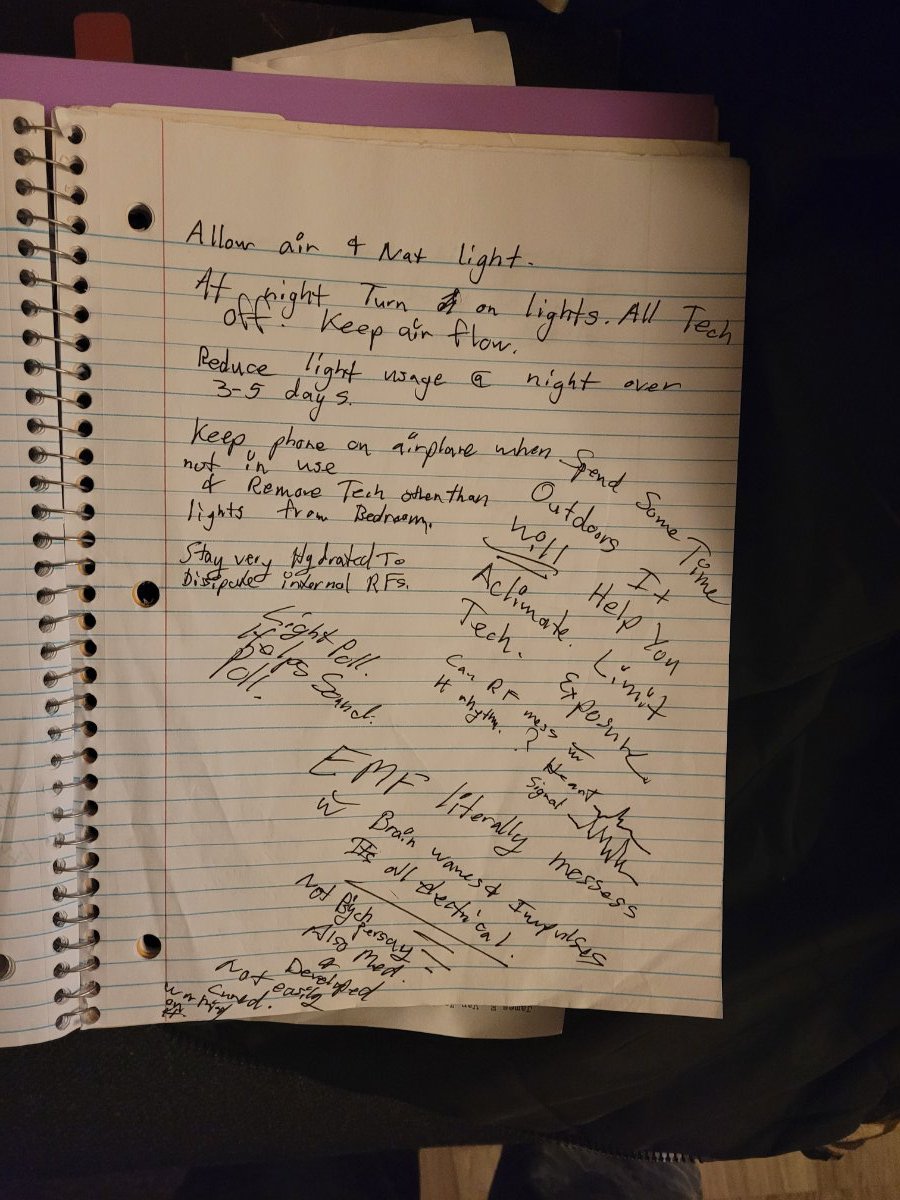 Allow air & Nat light.
At night Turn on lights. All Tech
off. Keep air flow.
Reduce light usage @ night over
3-5 days.
Keep phone on airplane when
not in use
& Remove Tech other than
lights from Bedroom.
Stay very Hydrated To
Disipate internal RFs.
Spend Some Time
Outdoors It
Will Help You
Aclimate. Limit
Tech. Exposure
Can RF mess w
H rhythm. ?
Heart
signal
Light Poll.
Helps Sound
Poll.
EMF literally messess
w Brain waves & Impulses
Its all electrical!
Not
persay
Also Med.
Developed
Not easily
cured.
working
on